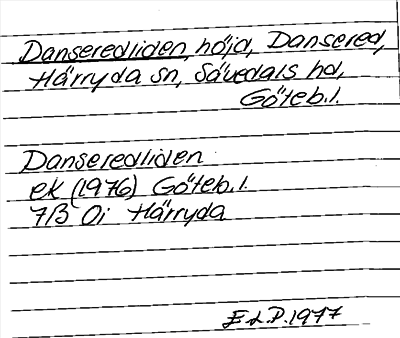 Danseredliden, höjd, Dansered,
Härryda sn, Sävedals hd,
Göteb.l.
Danseredliden
ek (1976) Göteb.l.
7B 0i Härryda
E.L.P.1977